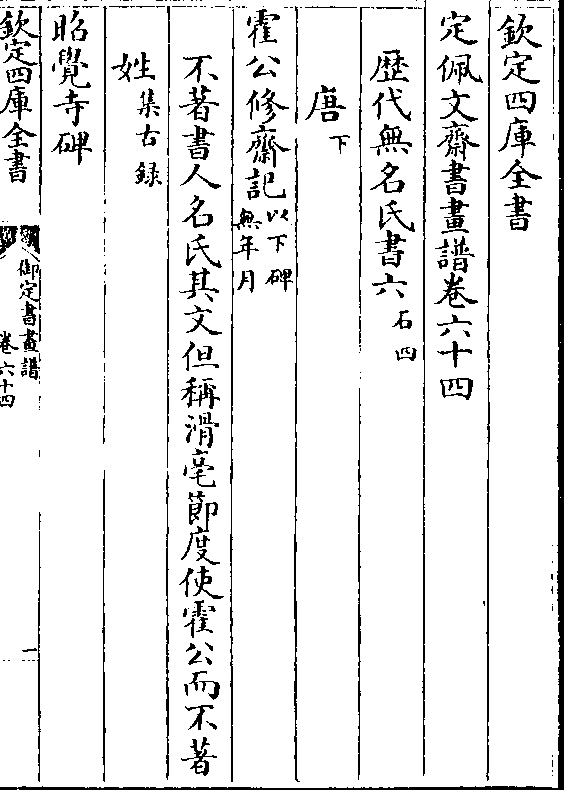 欽定四庫全書
定佩文齋書畫譜卷六十四
歷代無名氏書六石四
唐下
霍公修齋記以下碑無年月
不著書人名氏其文但稱滑亳節度使霍公而不著
姓集古録
昭覺寺碑
欽定四庫全書
御定書畫譜
卷六十四
一